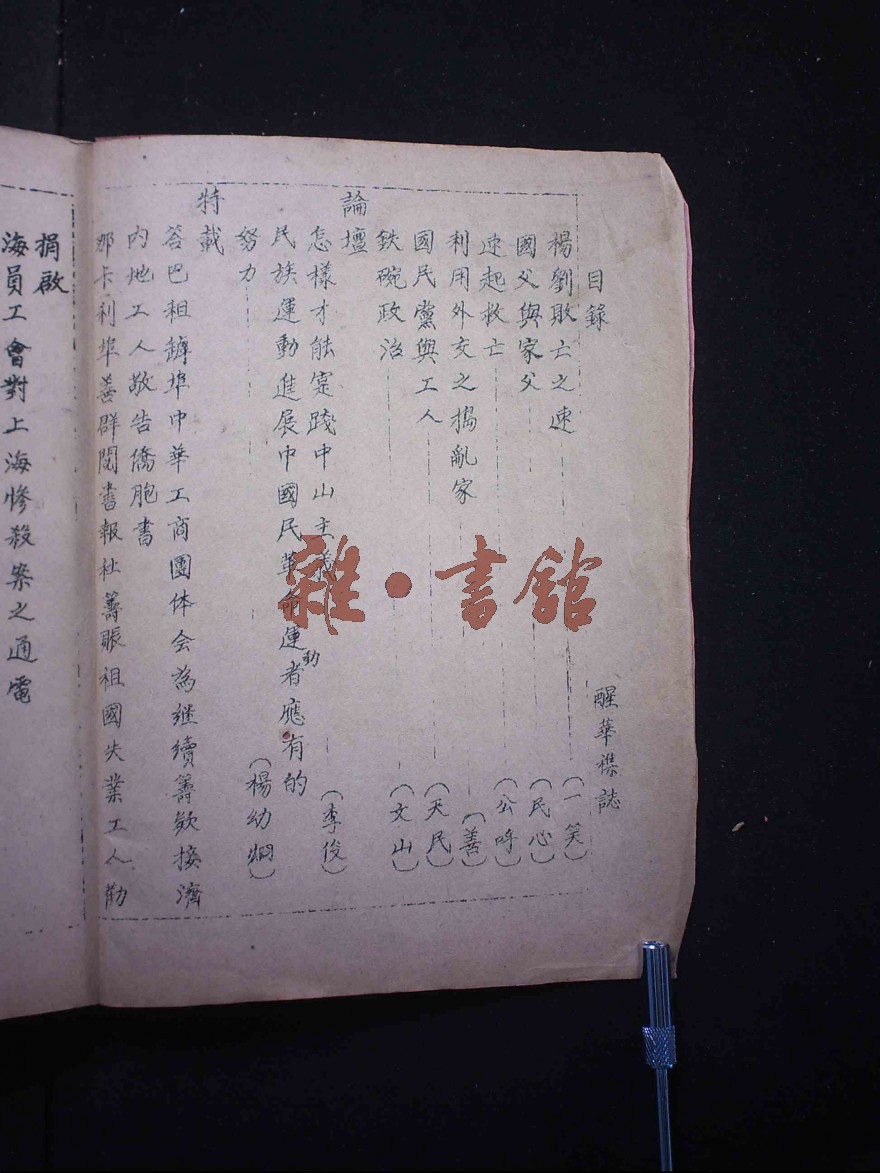 目錄 醒華襍誌
楊劉敗亡之速 (一笑)
國父與家父 (民心)
速起救亡 (公呼)
利用外交之搗亂家 (善)
國民黨與工人 (天民)
鉄碗政治 (文山)
論壇
怎樣才能寔踐中山主義 (李俊)
民族運動進展中國民革命運動者應有的
努力 (楊幼炯)
特載
答巴租繂埠中華工商團体会為继續籌欵接濟
内地工人敬告僑胞書
那卡利埠善群閱書報社籌賬祖國失業工人勸
捐啟
海員工會對上海慘殺案之通電
雜·書館